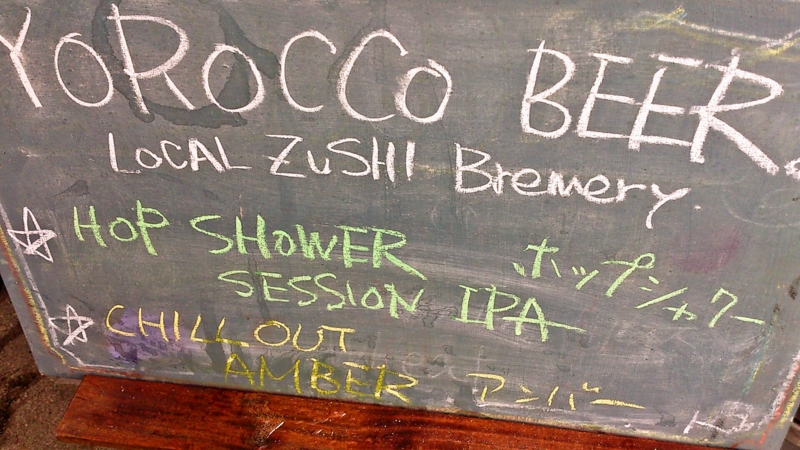 YOROCCO BEER.
LOCAL ZUSHI Bremery.
☆ HOP SHOWER ホップシャワー
SESSION IPA
☆ CHILL OUT
AMBER アンバー